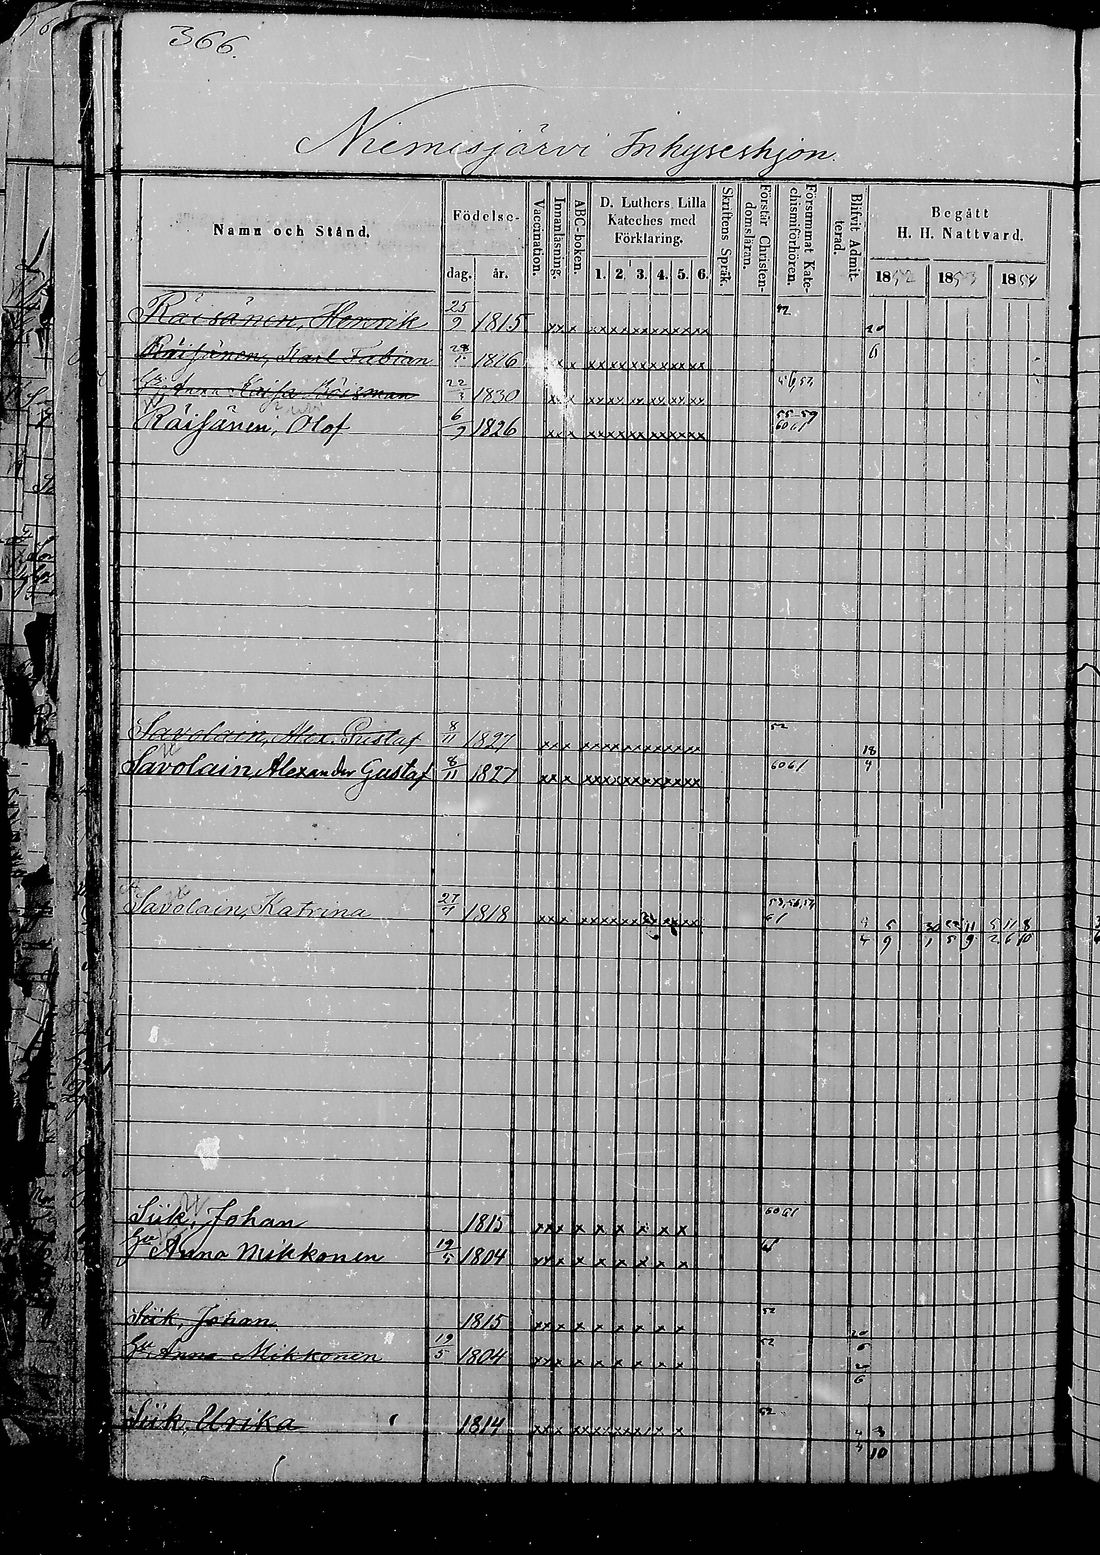 366.
Niemisjärvi Inhyseshjon.
Namn och Stånd.
Födelse-
dag. år.
Vaccination.
Innanläsning.
ABC-boken.
D. Luthers Lilla
Kateches med
Förklaring.
1. 2. 3. 4. 5. 6.
Skriftens Språk.
Förstår Christen-
domsläran.
Försummat Kate-
chismiförhören.
Blifvit Admit-
terad.
Begått
H. H. Nattvard.
1852 1853 1854
Räisänen, Henrik 25/9 1815 xxx xxxxxxxxxxxx
Räisänen, Karl Fabian 1816 xx xxxxxxxxxxxx 6
Hu Anna Kaisa 22 1830 xx xxxxxxxxxxxx
Räisänen, Olof 6/9 1826 xxx xxxxxxxxxxxx 55-59 60 61
Savolain, Alex. Gustaf 8/11 1827 xxx xxxxxxxxxxxx 52 18/4
Savolain Alexander Gustaf 8/11 1827 xxx xxxxxxxxxxxx 60 61
Savolain, Katrina 27 1818 xxx xxxxxxxxxxxx 61 5/9 30/1 22/5 11/9 5/2 11/6 8/10
Siik, Johan 1815 xxx x x x x x x 60 61
Hu Anna Mikkonen 19/5 1804 xxx x x x x x x
Siik, Johan 1815 xxx x x x x x x 52
Hu Anna Mikkonen 19/5 1804 xxx x x x x x x 52
Siik, Ulrika 1814 xxx xxxxxxxx x x 52 3/10